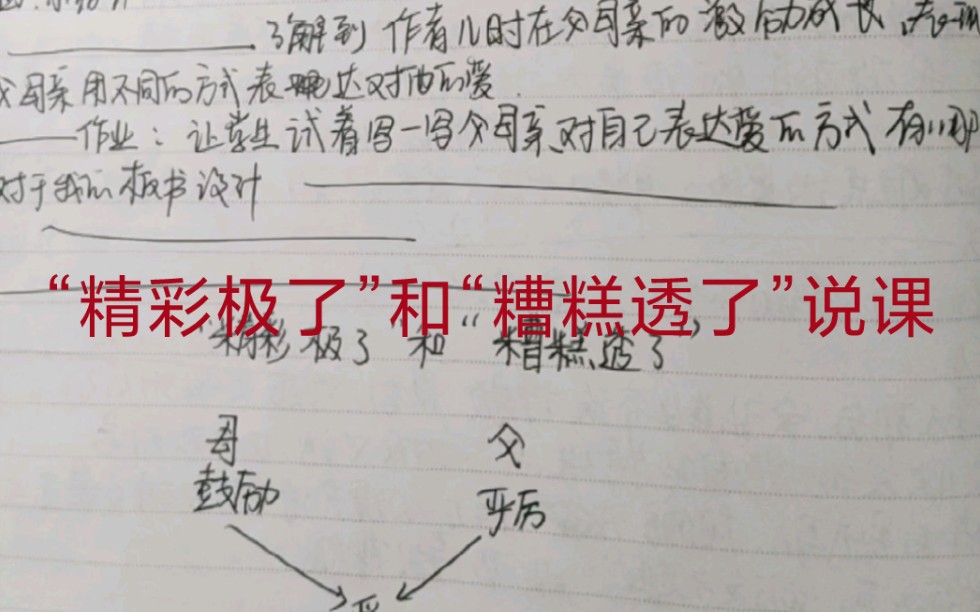 了解到作者儿时在父母亲的激励成长,表现
父母亲用不同的方式表达对他的爱.
——作业：让学生试着写一写父母亲对自己表达爱的方式有哪
对于我的板书设计
“精彩极了”和“糟糕透了”说课
“精彩极了”和“糟糕透了”
母 父
鼓励 严厉